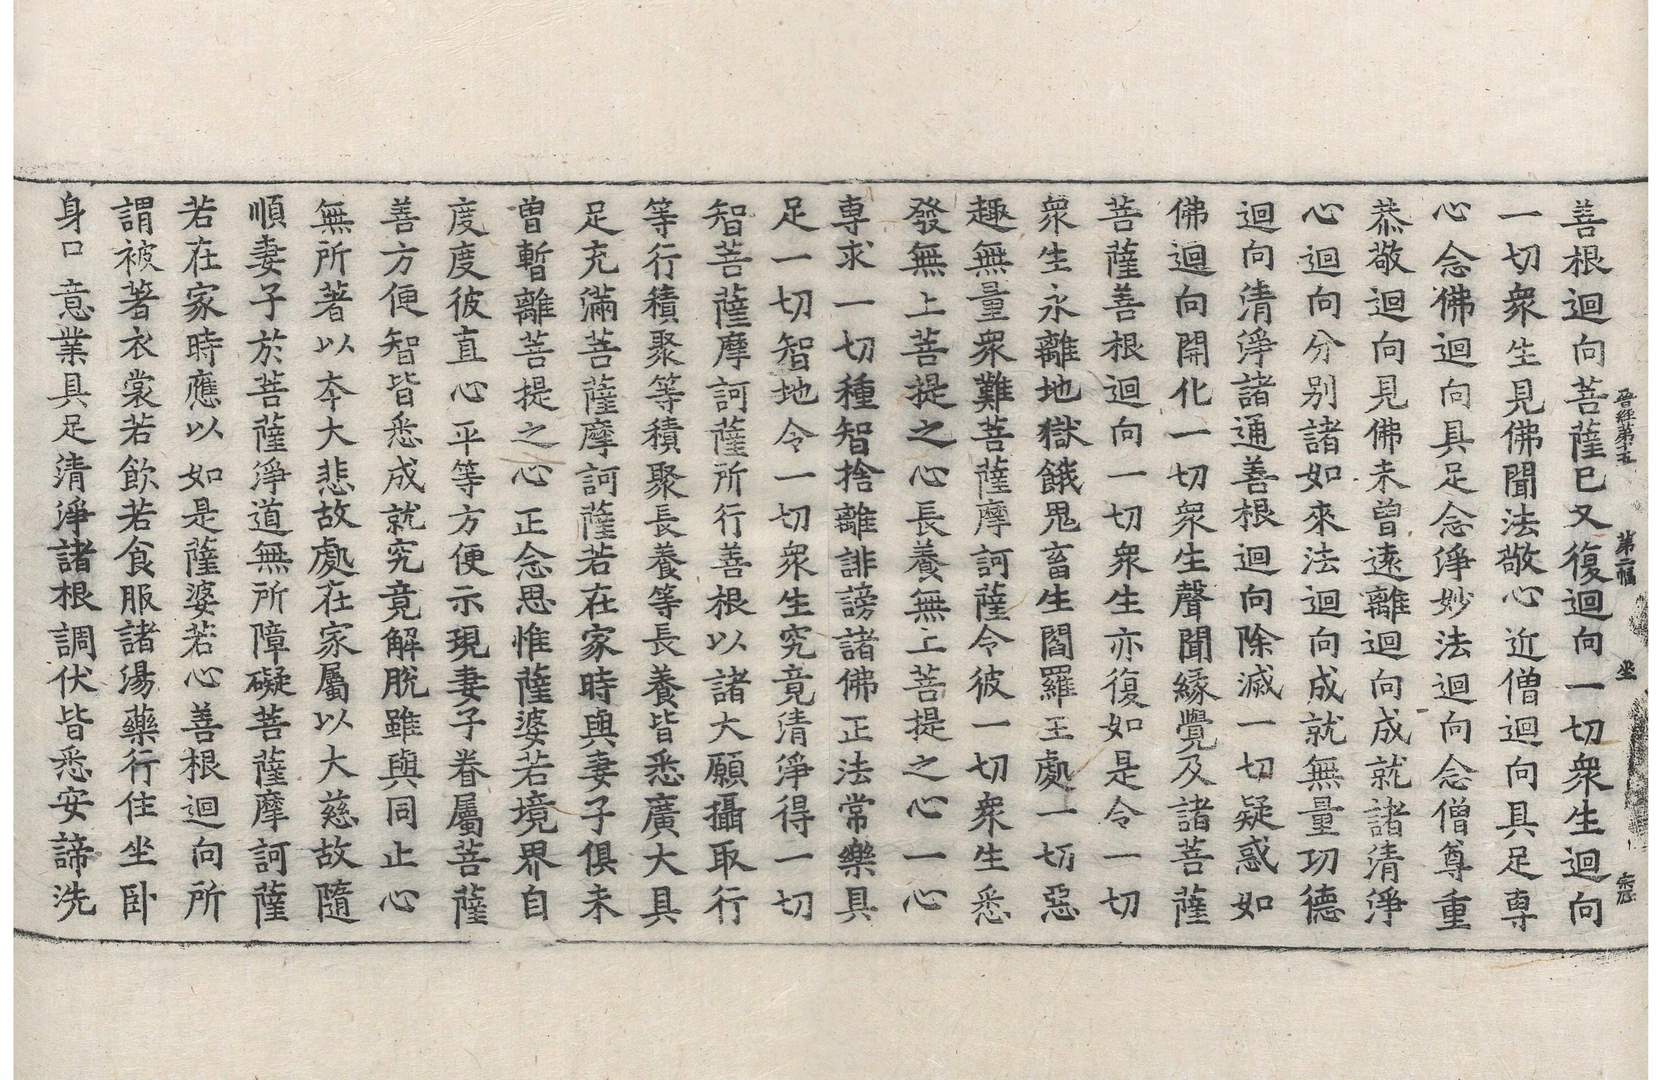 晉經第五　第二幅　坐
善根迴向菩薩已又復迴向一切衆生迴向
一切衆生見佛聞法敬心近僧迴向具足專
心念佛迴向具足念淨妙法迴向念僧尊重
恭敬迴向見佛未曾遠離迴向成就諸清淨
心迴向分別諸如來法迴向成就無量功德
迴向清淨諸通善根迴向除滅一切疑惑如
佛迴向開化一切衆生聲聞緣覺及諸菩薩
菩薩善根迴向一切衆生亦復如是令一切
衆生永離地獄餓鬼畜生閻羅王處一切惡
趣無量衆難菩薩摩訶薩令彼一切衆生悉
發無上菩提之心長養無上菩提之心一心
專求一切種智捨離誹謗諸佛正法常樂具
足一切智地令一切衆生究竟清淨得一切
智菩薩摩訶薩所行善根以諸大願攝取行
等行積聚等積聚長養等長養皆悉廣大具
足充滿菩薩摩訶薩若在家時與妻子俱未
曾暫離菩提之心正念思惟薩婆若境界自
度度彼直心平等方便示現妻子眷屬菩薩
善方便智皆悉成就究竟解脫雖與同止心
無所著以本大悲故處在家屬以大慈故隨
順妻子於菩薩淨道無所障礙菩薩摩訶薩
若在家時應以如是薩婆若心善根迴向所
謂被著衣裳若飲若食服諸湯藥行住坐卧
身口意業具足清淨諸根調伏皆悉安諦洗